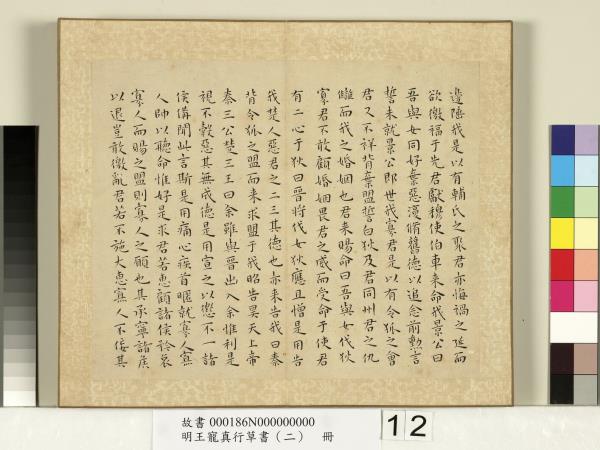 邊陲我是以有輔氏之聚君亦悔禍之延而
欲徼福于先君獻穆使伯車来命我景公曰
吾與女同好棄惡復脩舊德以追念前勲言
誓未就景公即世我寡君是以有令狐之會
君又不祥背棄盟誓白狄及君同州君之仇
讎而我之婚姻也君来賜命曰吾與女伐狄
寡君不敢顧婚姻畏君之威而受命于使君
有二心于狄曰晉將伐女狄應且憎是用告
我楚人惡君之二三其德也亦来告我曰秦
背令狐之盟而来求盟于我昭告昊天上帝
秦三公楚三王曰余雖與晉出入余惟利是
視不穀惡其無成德是用宣之以懲不一諸
侯備聞此言斯是用痛心疾首暱就寡人寡
人帥以聽命惟好是求君若惠顧諸侯矜哀
寡人而賜之盟則寡人之願也其承寧諸侯
以退豈敢徼亂君若不施大惠寡人不佞其
故書 000186N000000000
明王寵真行草書（二） 冊
12